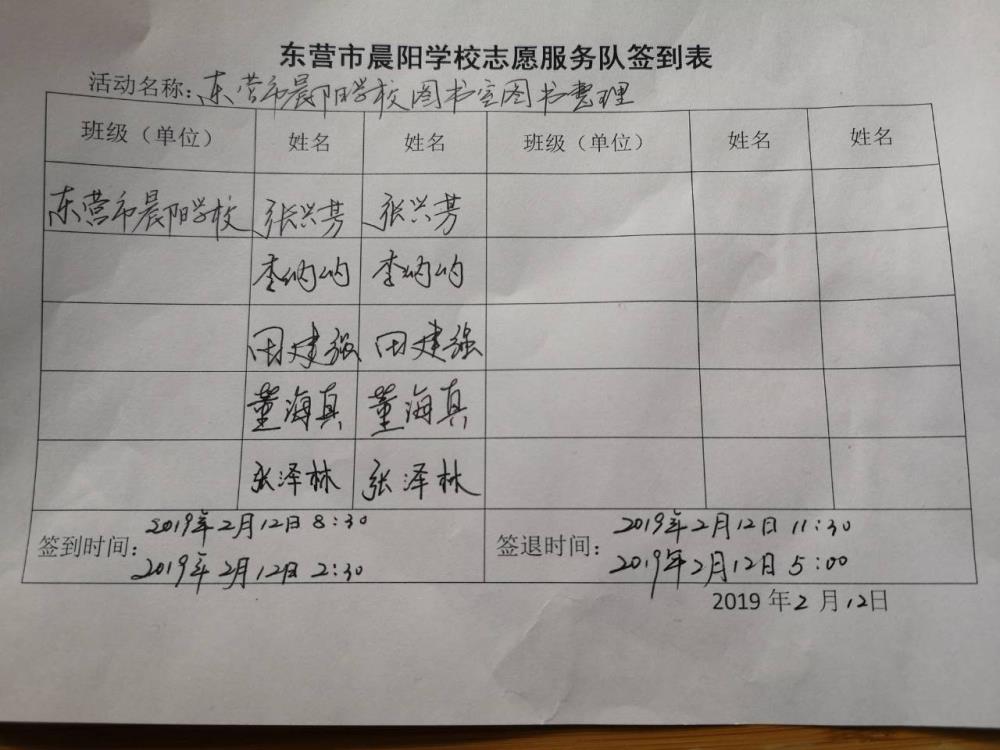 东营市晨阳学校志愿服务队签到表
活动名称:东营市晨阳学校图书室图书整理
班级（单位） 姓名 姓名 班级（单位） 姓名 姓名
东营市晨阳学校 张兴芳 张兴芳
李纳纳 李纳纳
田建强 田建强
董海真 董海真
张泽林 张泽林
2019年2月12日 8:30 2019年2月12日 11:30
签到时间: 签退时间:
2019年2月12日 2:30 2019年2月12日 5:00
2019年2月12日